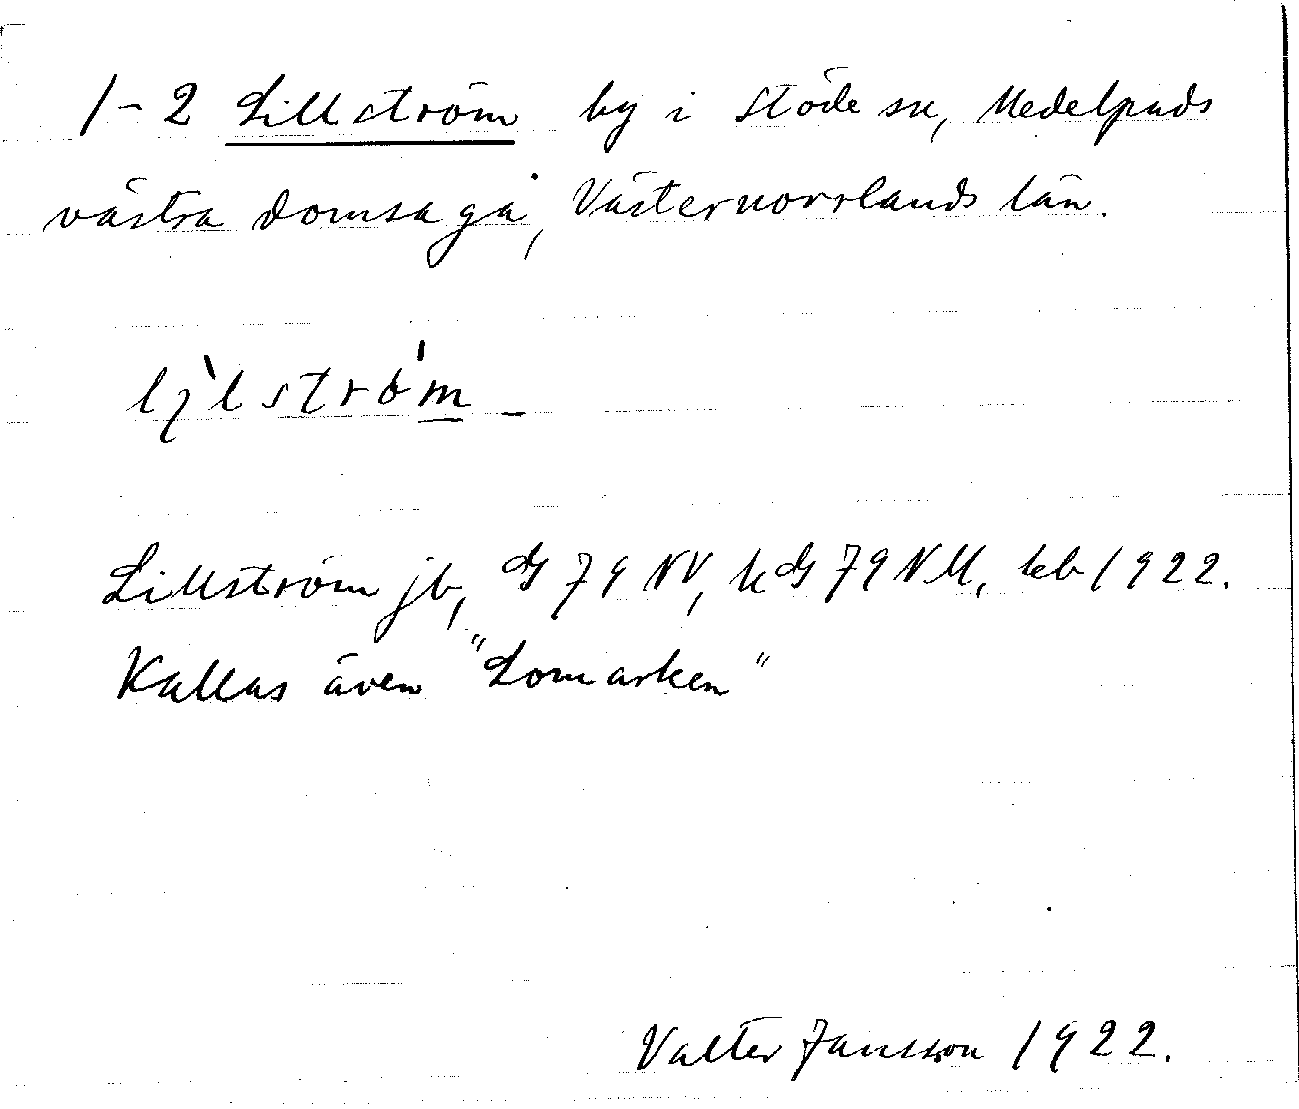 1-2 Lillström by i Stöde sn, Medelpads
västra domsaga, Västernorrlands län.
Lillström jb, dG 79 NV, kdG 79 NM, kb 1922.
Kallas även "Lomarken"
Valter Jansson 1922.